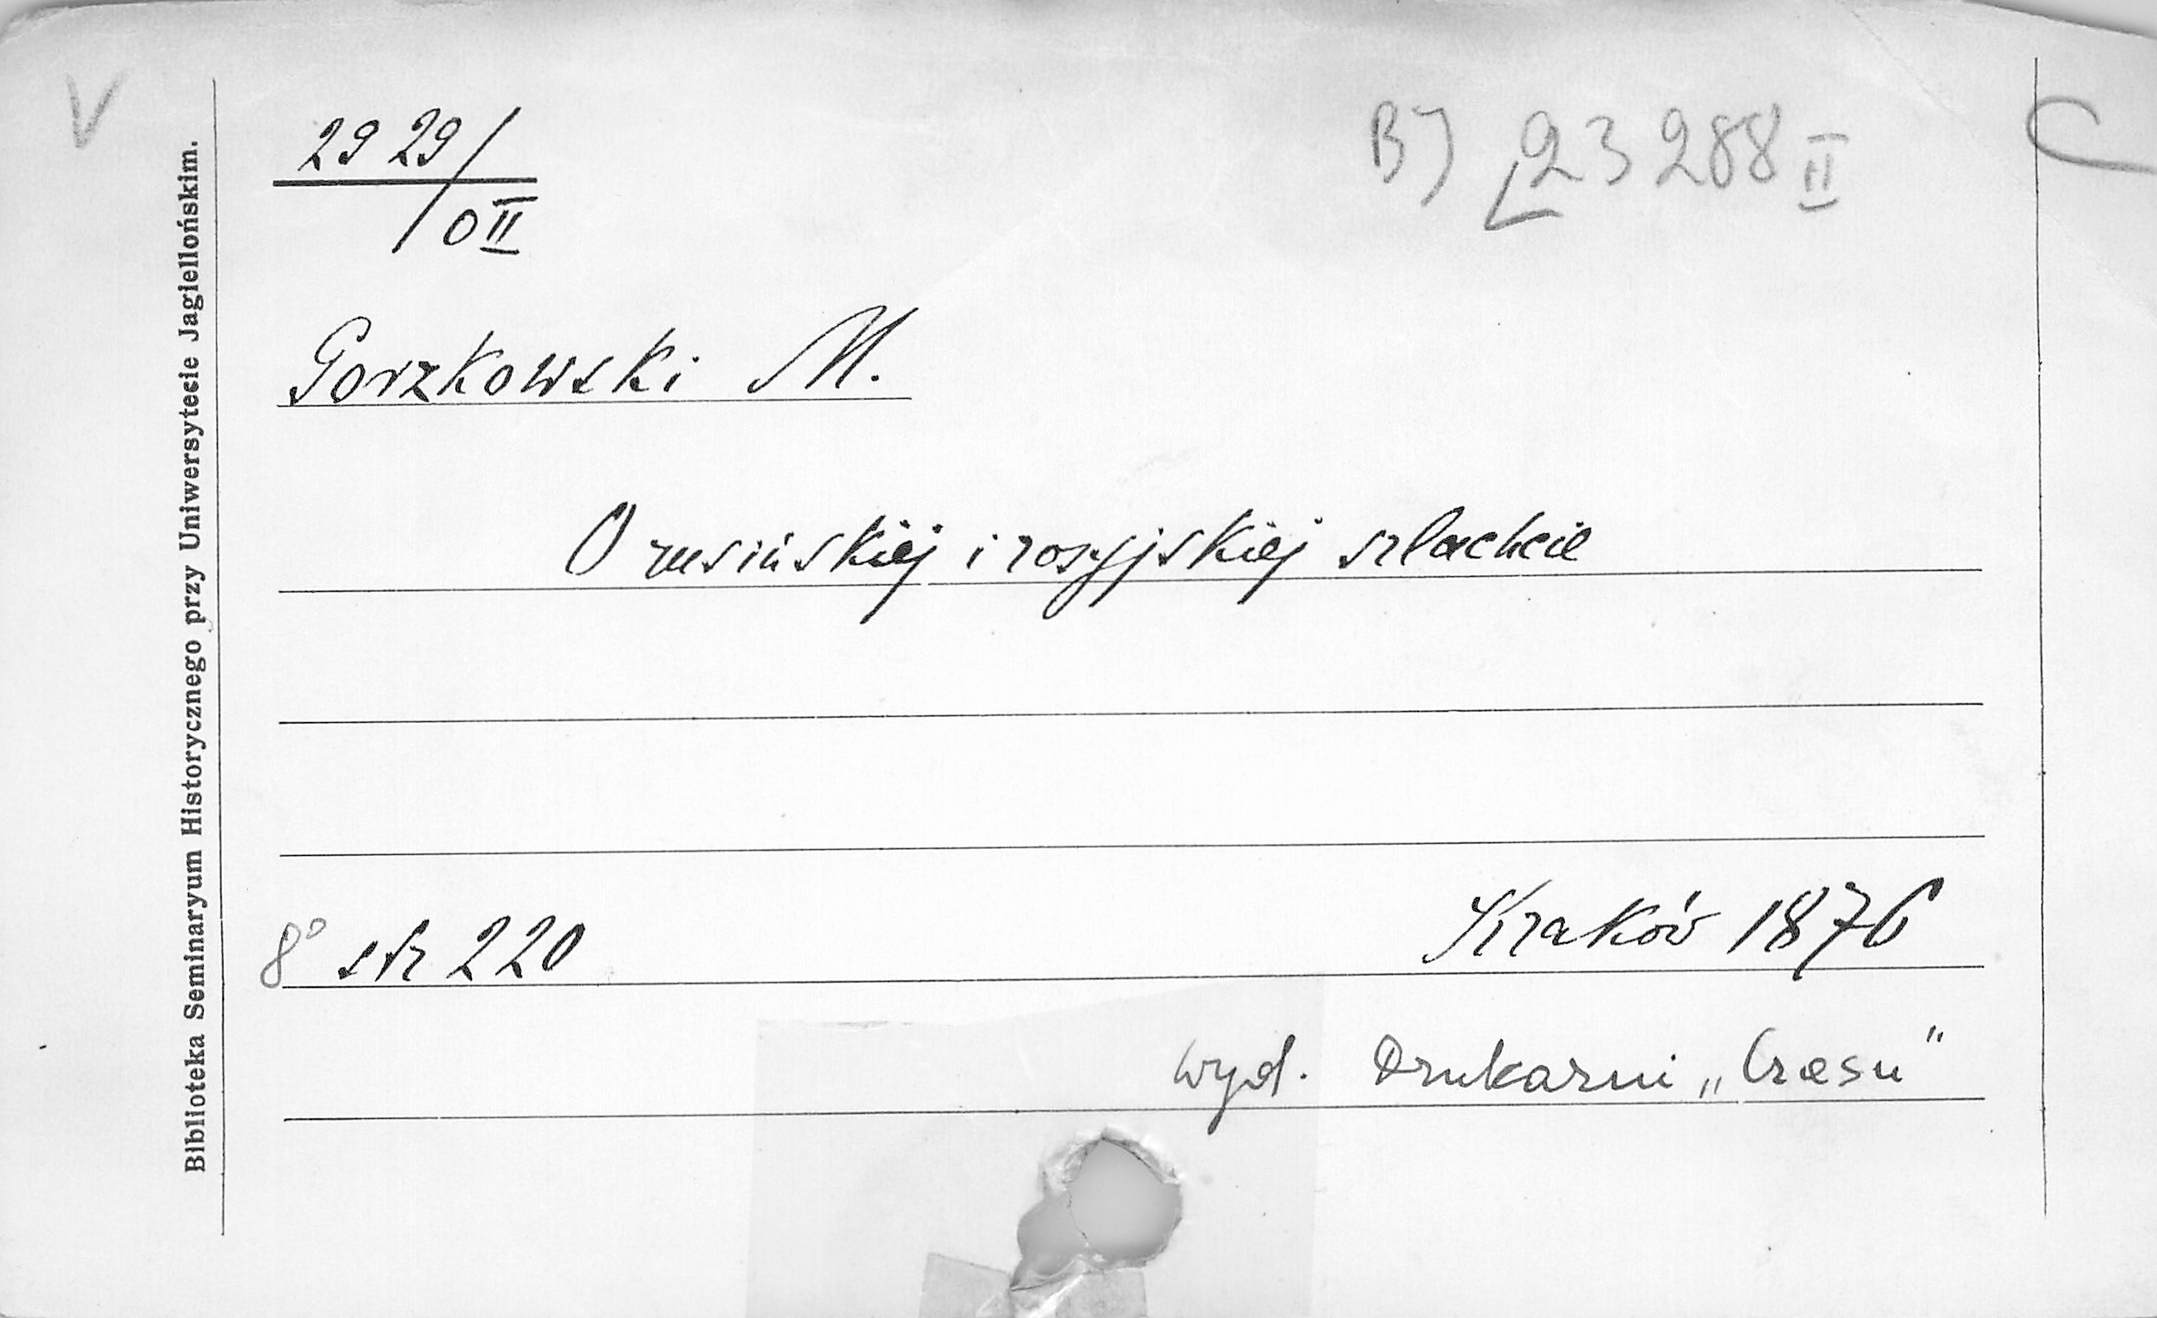 V
2929/
/0II
BJ 23288 II
C
Gorzkowski M.
O rusińskiéj i rosyjskiéj szlachcie
8° str 220
Kraków 1876
wyd. Drukarni „Czasu"
Biblioteka Seminaryum Historycznego przy Uniwersytecie Jagiellońskim.